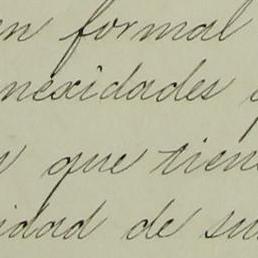 en formal
nexidades
que tiene
idad de su